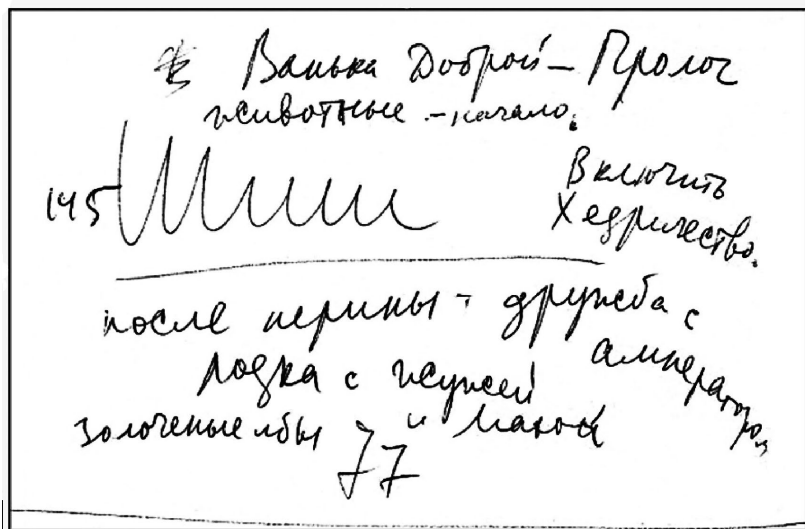 Ванька Доброй – Пролог
животные – начало.
145 Шиш
Включить
Хедричество.
после перины – дружба с
амператором
лодка с
золоченые лбы и
77